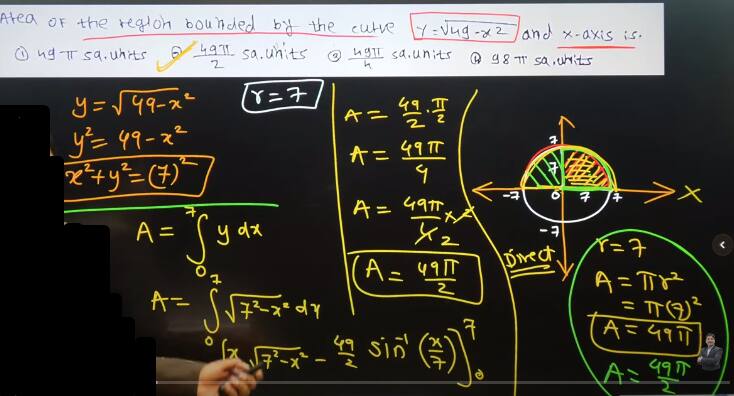 Area of the region bounded by the curve y = √49-x² and x-axis is.
① 49π sq.units ② 49π/2 sq.units ③ 49π/4 sq.units ④ 98π sq.units
y = √49-x²
r = 7
y² = 49-x²
x²+y² = (7)²
A = ∫₀⁷ y dx
A = ∫₀⁷ √7²-x² dx
[x √7²-x² - 49/2 sin⁻¹ (x/7)]₀⁷
A = 49/2 · π/2
A = 49π/4
A = 49π/4 × 2
2
A = 49π/2
7
7
-7 0 7 7 X
-7
Direct
r = 7
A = πr²
= π(7)²
A = 49π
A = 49π/2